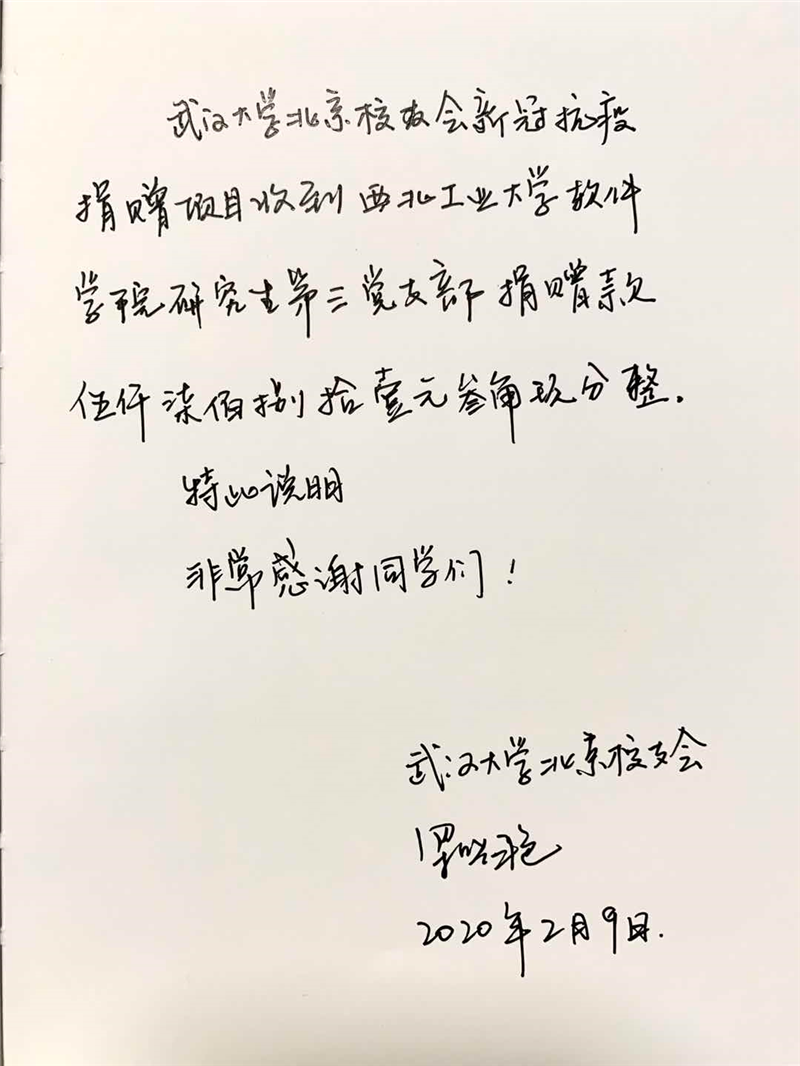 武汉大学北京校友会新冠抗疫
捐赠项目收到西北工业大学软件
学院研究生第三党支部捐赠款
伍仟柒佰捌拾壹元叁角玖分整。
特此说明
非常感谢同学们！
武汉大学北京校友会
2020年2月9日.